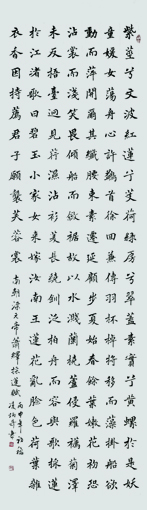 紫莖兮文波紅蓮兮芰荷綠房兮翠蓋素實兮黃螺於是妖
童媛女蕩舟心許鷁首徐回兼傳羽杯棹將移而藻掛船欲
動而萍開爾其纖腰束素遷延顧步夏始春餘葉嫩花初恐
沾裳而淺笑畏傾船而斂裾故以水濺蘭橈蘆侵羅襪菊澤
未反梧臺迥見荇濕沾衫菱長繞釧泛舟而容與歌採蓮
於江渚歌曰碧玉小家女來嫁汝南王蓮花亂臉色荷葉雜
衣香因持薦君子願襲芙蓉裳 南朝梁元帝蕭繹採蓮賦 丙申年初 書